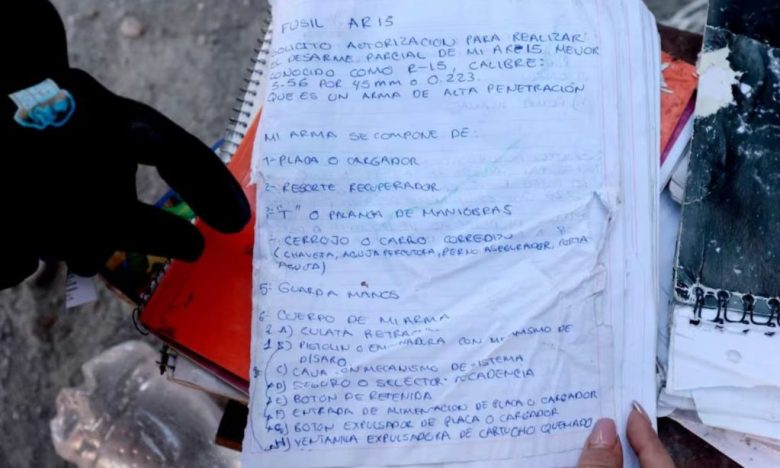 FUSIL AR15
SOLICITO ACTORIZACION PARA REALIZAR
EL DESARME PARCIAL DE MI AR-15 MEJOR
CONOCIDO COMO R-15, CALIBRE:
5.56 POR 45 MM O 0.223.
QUE ES UN ARMA DE ALTA PENETRACIÓN
MI ARMA SE COMPONE DE:
1- PLACA O CARGADOR
2- RESORTE RECUPERADOR
"T" O PALANCA DE MANIOBRAS
- CERROJO O CARRO CORREDIZO
(CHAVETA, AGUJA PERCUTORA, PERNO ASEGURADOR, PORTA
AGUJA)
5- GUARDA MANOS
6- CUERPO DE MI ARMA
A) CULATA
B) PISTOLIN O CON DE
C) CAJA CON MECANISMO DE
D) SEGURO O SELECTOR CADENCIA
E) BOTON DE RETENIDA
F) ENTRADA DE ALIMENTACION DE PLACA O CARGADOR
G) BOTON EXPULSADOR DE PLACA O CARGADOR
H) VENTANILLA EXPULSADORA DE CARTUCHO QUEMADO